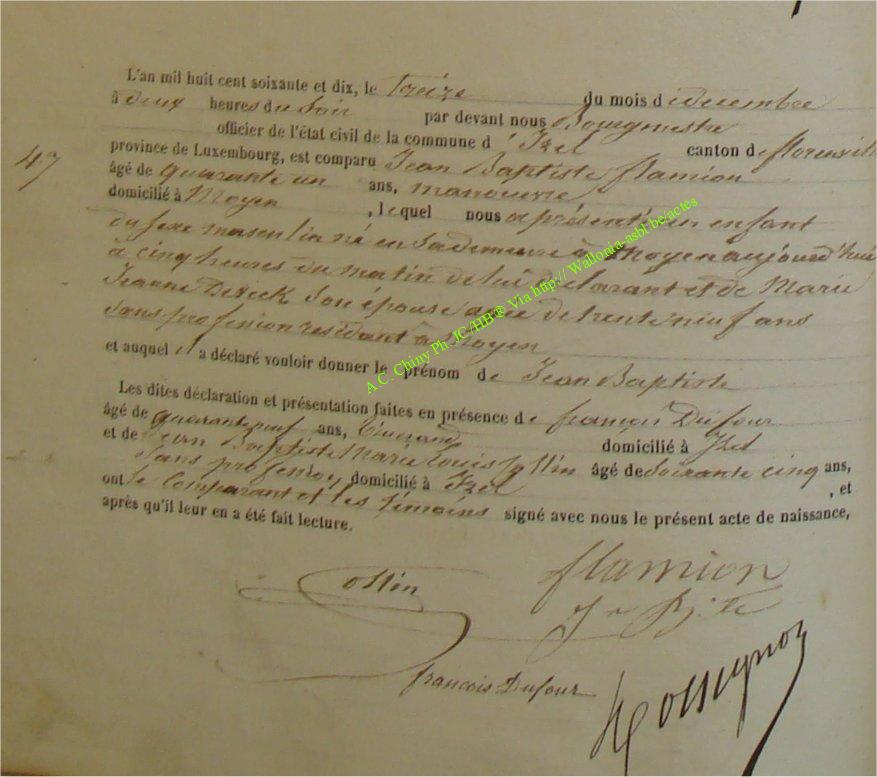 L'an mil huit cent soixante et dix, le treize du mois d e décembre
à deux heures du soir par devant nous Bourgmestre
officier de l'état civil de la commune d 'Izel canton de florenville
47
province de Luxembourg, est comparu Jean Baptiste flamion
âgé de quarante un ans, manoeuvre
domicilié à Moyen , lequel nous a présenté un enfant
du sexe masculin né en sa demeure à Moyen aujourd'hui
à cinq heures du matin de lui déclarant et de Marie
Jeanne son épouse agée de trente neuf ans
sans profession residant à Moyen
et auquel il a déclaré vouloir donner le prénom de Jean Baptiste
Les dites déclaration et présentation faites en présence de françois Dufour
âgé de quarante neuf ans, domicilié à Izel
et de Jean Baptiste Marie Louis Collin âgé de soixante cinq ans,
sans profession, domicilié à Izel , et
ont le Comparant et les témoins signé avec nous le présent acte de naissance,
après qu'il leur en a été fait lecture.
Collin
flamion
J n B te
francois Dufour
Rossignon
A.C. Chiny Ph. JC/HB® Via http:// Wallonia-asbl-be/actes